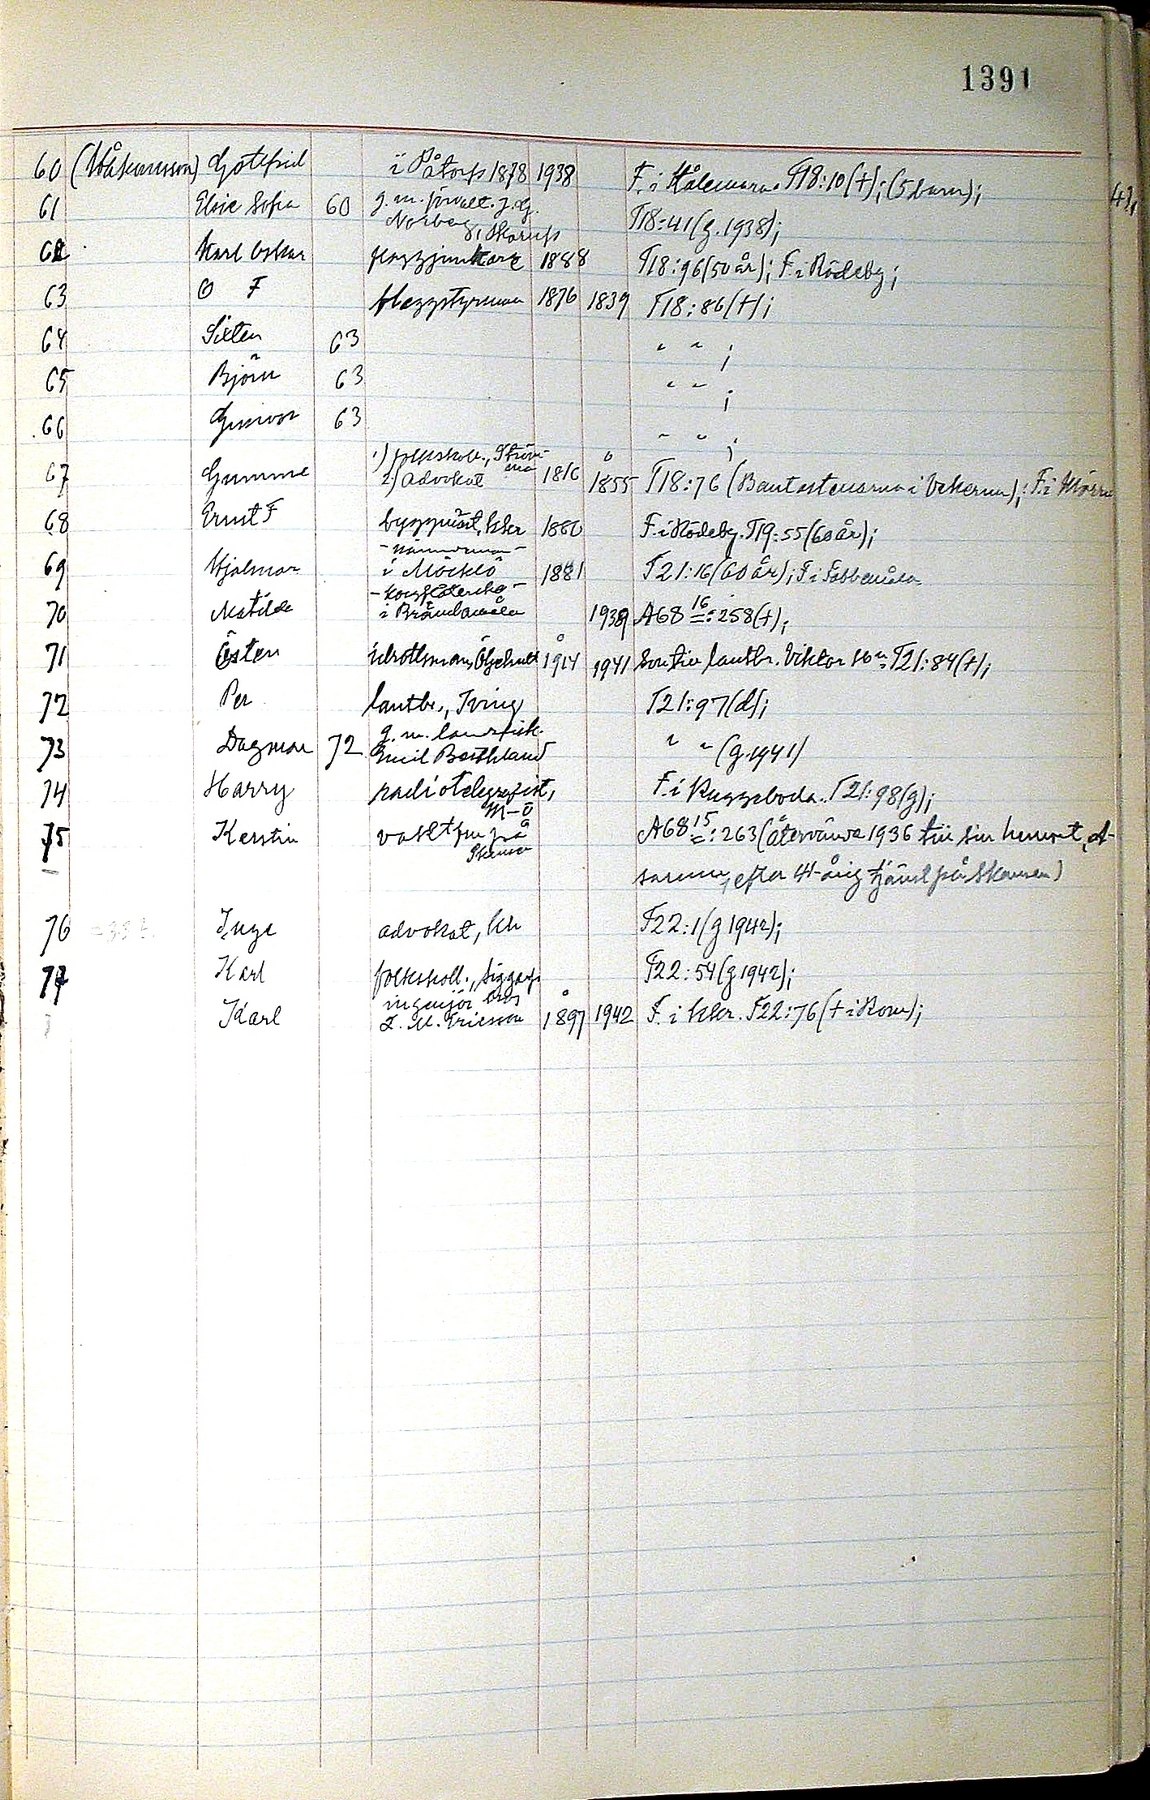 1391
60 (Håkansson) Gottfrid i Påtorp 1878 1938 F. i T18:10(+); (5 barn);
61 Elise Sofia 60 g. m. förvalt. J. G. Norberg, T18:41(g. 1938);
62 Karl Oskar flaggjunkare 1888 T18:96(50 år); F. i Rödeby;
63 O F flaggstyrman 1876 1839 T18:86(+);
64 Sixten 63 " " ;
65 Björn 63 " " ;
66 Gunvor 63 " " ;
67 Gumme 1) folkskoll.,
2) advokat 1816 1855 T18:76 (Bautastenarna i Vekerum); F. i Mörru
68 Ernst F byggmäst, kkr 1880 F. i Rödeby. T19:55(60 år);
69 Hjalmar i Möcklö 1881 T21:16(60 år); F. i
70 Matilda i Brändamåla 1939 A68 16:258(+);
71 Östen idrottsman, 1914 1941 Son till lantbr. Viktor Hn; T21:84(+);
72 Per lantbr., Tving T21:97(d);
73 Dagmar 72 g. m. landsfisk. Emil Berthland " " (g. 1941)
74 Harry radiotelegrafist, M-ö F. i Kuggeboda. T21:98(g);
75 Kerstin på Skansen A68 15:263 (återvände 1936 till sin hemort,
efter 41-årig tjänst på Skansen)
76 Inge advokat, kkr T22:1(g 1942);
77 Karl folkskoll., T22:54(g 1942);
Karl ingenjör hos L. M. Ericsson 1897 1942 F. i kkr. T22:76(+ i Rom);